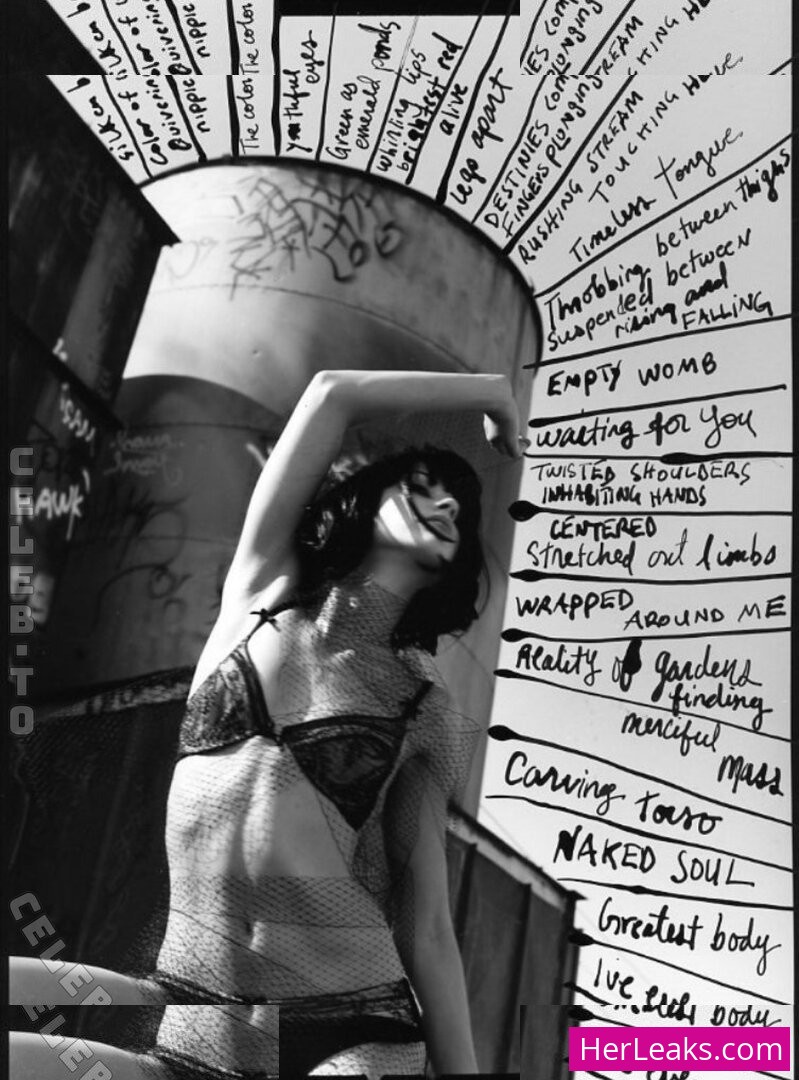 Silk can b
Color of
Quivering
nipple
The color
youthful
eyes
Green as
emerald ponds
whirling lips
brightest red
alive
legs apart
DESTINIES
FINGERS PLUNGING
RUSHING STREAM
TOUCHING
Timeless tongue
Throbbing between thighs
suspended between
rising and
FALLING
EMPTY WOMB
waiting for you
TWISTED SHOULDERS
INHABITING HANDS
CENTERED
Stretched out limbs
WRAPPED AROUND ME
Reality of gardens
finding
merciful
mass
Carving torso
NAKED SOUL
Greatest body
I've
body
HAWK
CELEB.TO
CELEB
HerLeaks.com